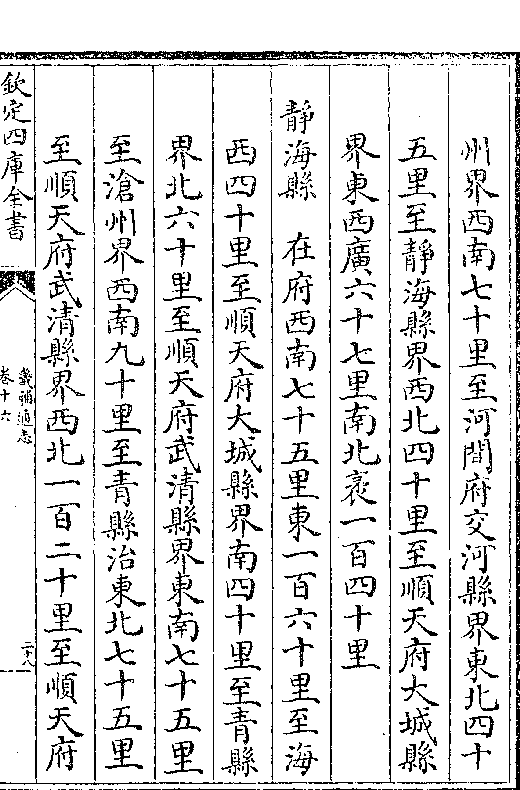 州界西南七十里至河間府交河縣界東北四十
五里至靜海縣界西北四十里至順天府大城縣
界東西廣六十七里南北袤一百四十里
靜海縣　在府西南七十五里東一百六十里至海
西四十里至順天府大城縣界南四十里至青縣
界北六十里至順天府武清縣界東南七十五里
至滄州界西南九十里至青縣治東北七十五里
至順天府武清縣界西北一百二十里至順天府
欽定四庫全書
畿輔通志
卷十六
二十八